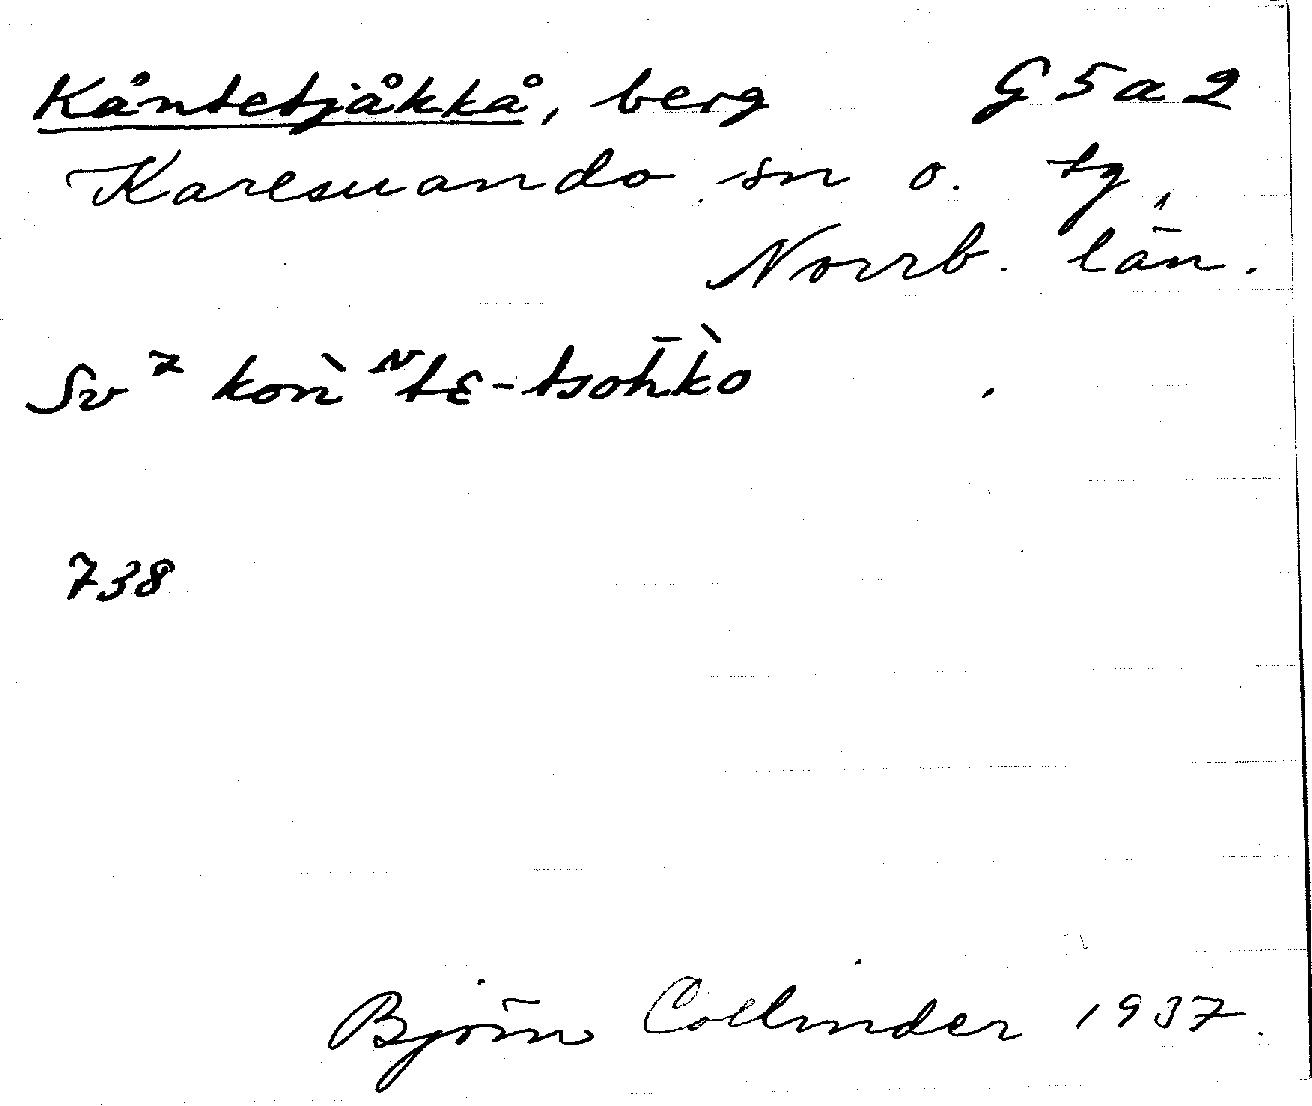 Kåntetjåkkå, berg G5a2
Karesuando sn o. tg,
Norrb. län.
Sv⁷ koǹᴺtɛ-tsoh̄k̀o
738
Björn Collinder 1937.